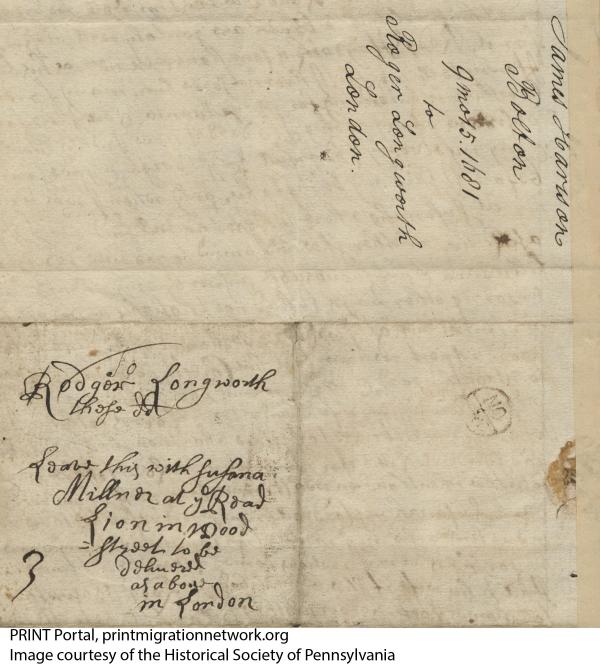 James Harison
Bolton
9mo 15. 1681
to
Roger Longworth
London.
Rodger Longworth
these dd
Leave this with Susana
Millner at ye Read
Lion in Wood
street to be
delivered
as above
in London
3
NO
PRINT Portal, printmigrationnetwork.org
Image courtesy of the Historical Society of Pennsylvania